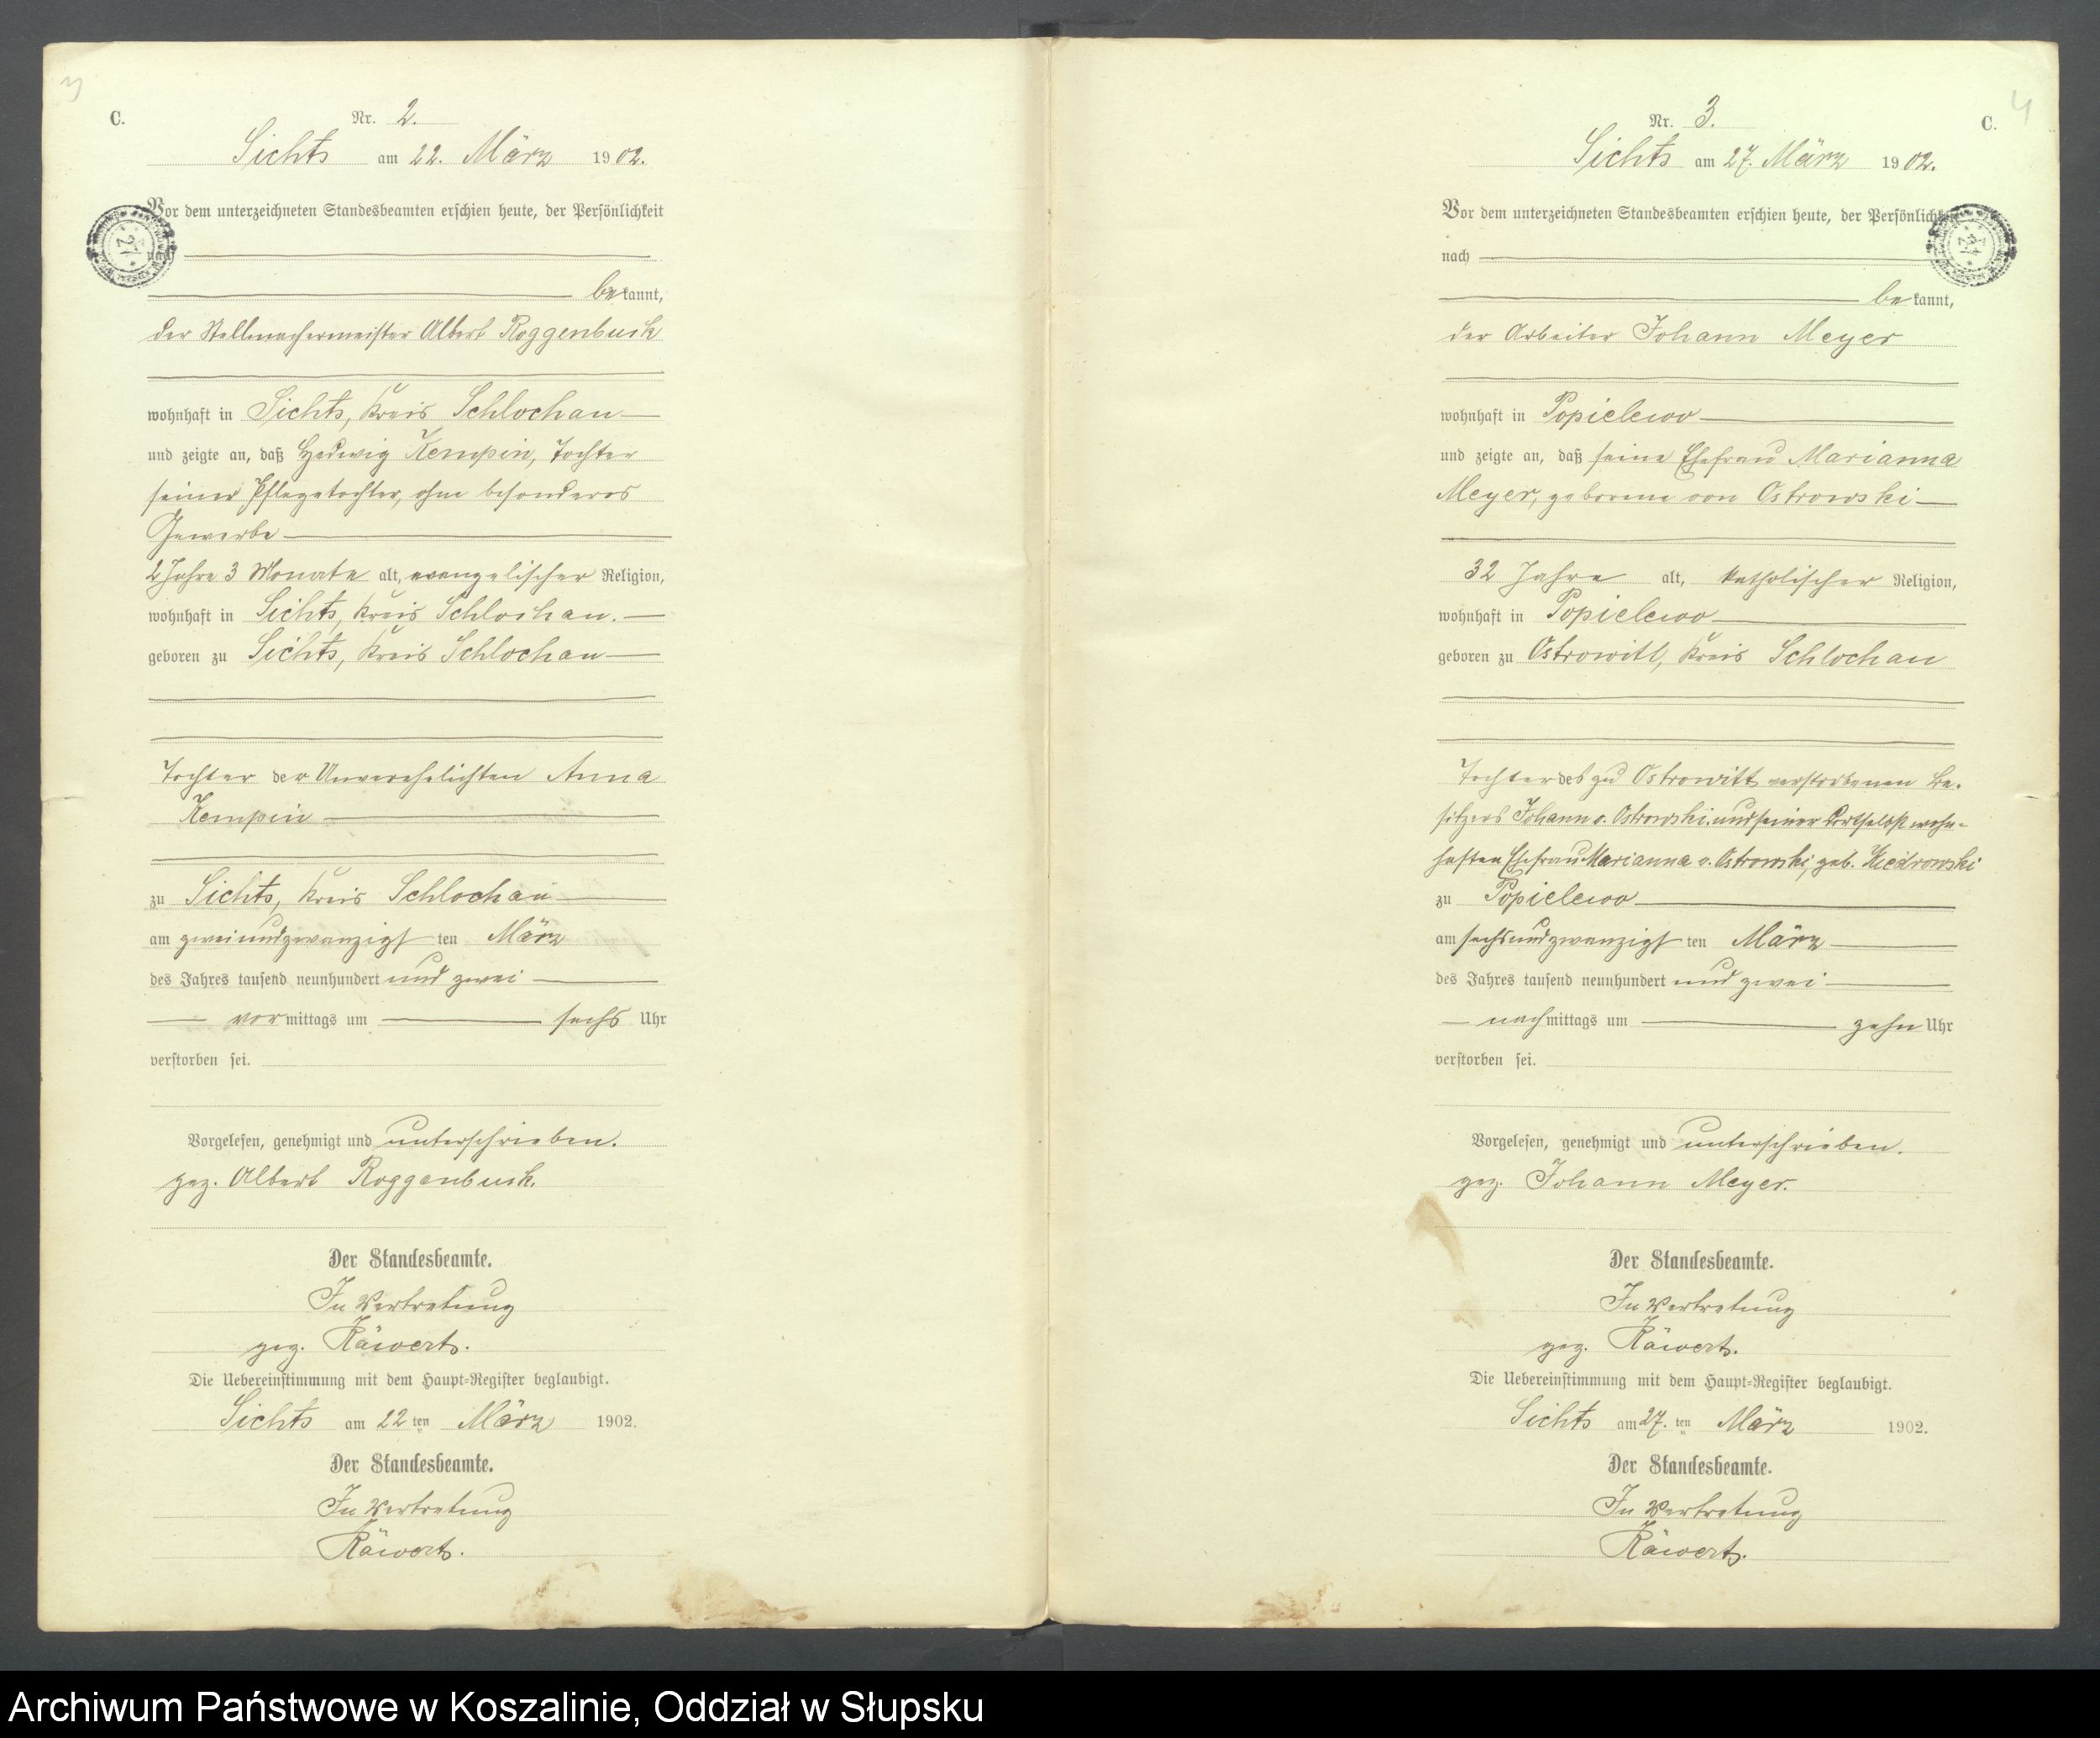 3
C.
Nr. 2.
Sichts am 22. März 1902.
Vor dem unterzeichneten Standesbeamten erschien heute, der Persönlichkeit
nach
bekannt,
der Stellmachermeister Albert Roggenbuck
wohnhaft in Sichts, Kreis Schlochau
und zeigte an, daß Hedwig Kempin, Tochter
seiner Pflegetochter, ohne besonderes
Gewerbe
2 Jahre 3 Monate alt, evangelischer Religion,
wohnhaft in Sichts, Kreis Schlochau.
geboren zu Sichts, Kreis Schlochau
Tochter der Unverehelichten Anna
Kempin
zu Sichts, Kreis Schlochau
am zweiundzwanzigsten März
des Jahres tausend neunhundert und zwei
vormittags um sechs Uhr
verstorben sei.
Vorgelesen, genehmigt und unterschrieben.
gez. Albert Roggenbuck.
Der Standesbeamte.
In Vertretung
gez. Räwert.
Die Uebereinstimmung mit dem Haupt-Register beglaubigt.
Sichts am 22ten März 1902.
Der Standesbeamte.
In Vertretung
Räwert.
4
C.
Nr. 3.
Sichts am 27. März 1902.
Vor dem unterzeichneten Standesbeamten erschien heute, der Persönlichkeit
nach
bekannt,
der Arbeiter Johann Meyer
wohnhaft in Popielewo
und zeigte an, daß seine Ehefrau Marianna
Meyer, geborene von Ostrowski
32 Jahre alt, katholischer Religion,
wohnhaft in Popielewo
geboren zu Ostrowitt, Kreis Schlochau
Tochter des zu Ostrowitt verstorbenen Be-
sitzers Johann v. Ostrowski und seiner dortselbst wohn-
haften Ehefrau Marianna v. Ostrowski, geb.
zu Popielewo
am sechsundzwanzigsten März
des Jahres tausend neunhundert und zwei
nachmittags um zehn Uhr
verstorben sei.
Vorgelesen, genehmigt und unterschrieben.
gez. Johann Meyer.
Der Standesbeamte.
In Vertretung
gez. Räwert.
Die Uebereinstimmung mit dem Haupt-Register beglaubigt.
Sichts am 27. ten März 1902.
Der Standesbeamte.
In Vertretung
Räwert.
Archiwum Państwowe w Koszalinie, Oddział w Słupsku